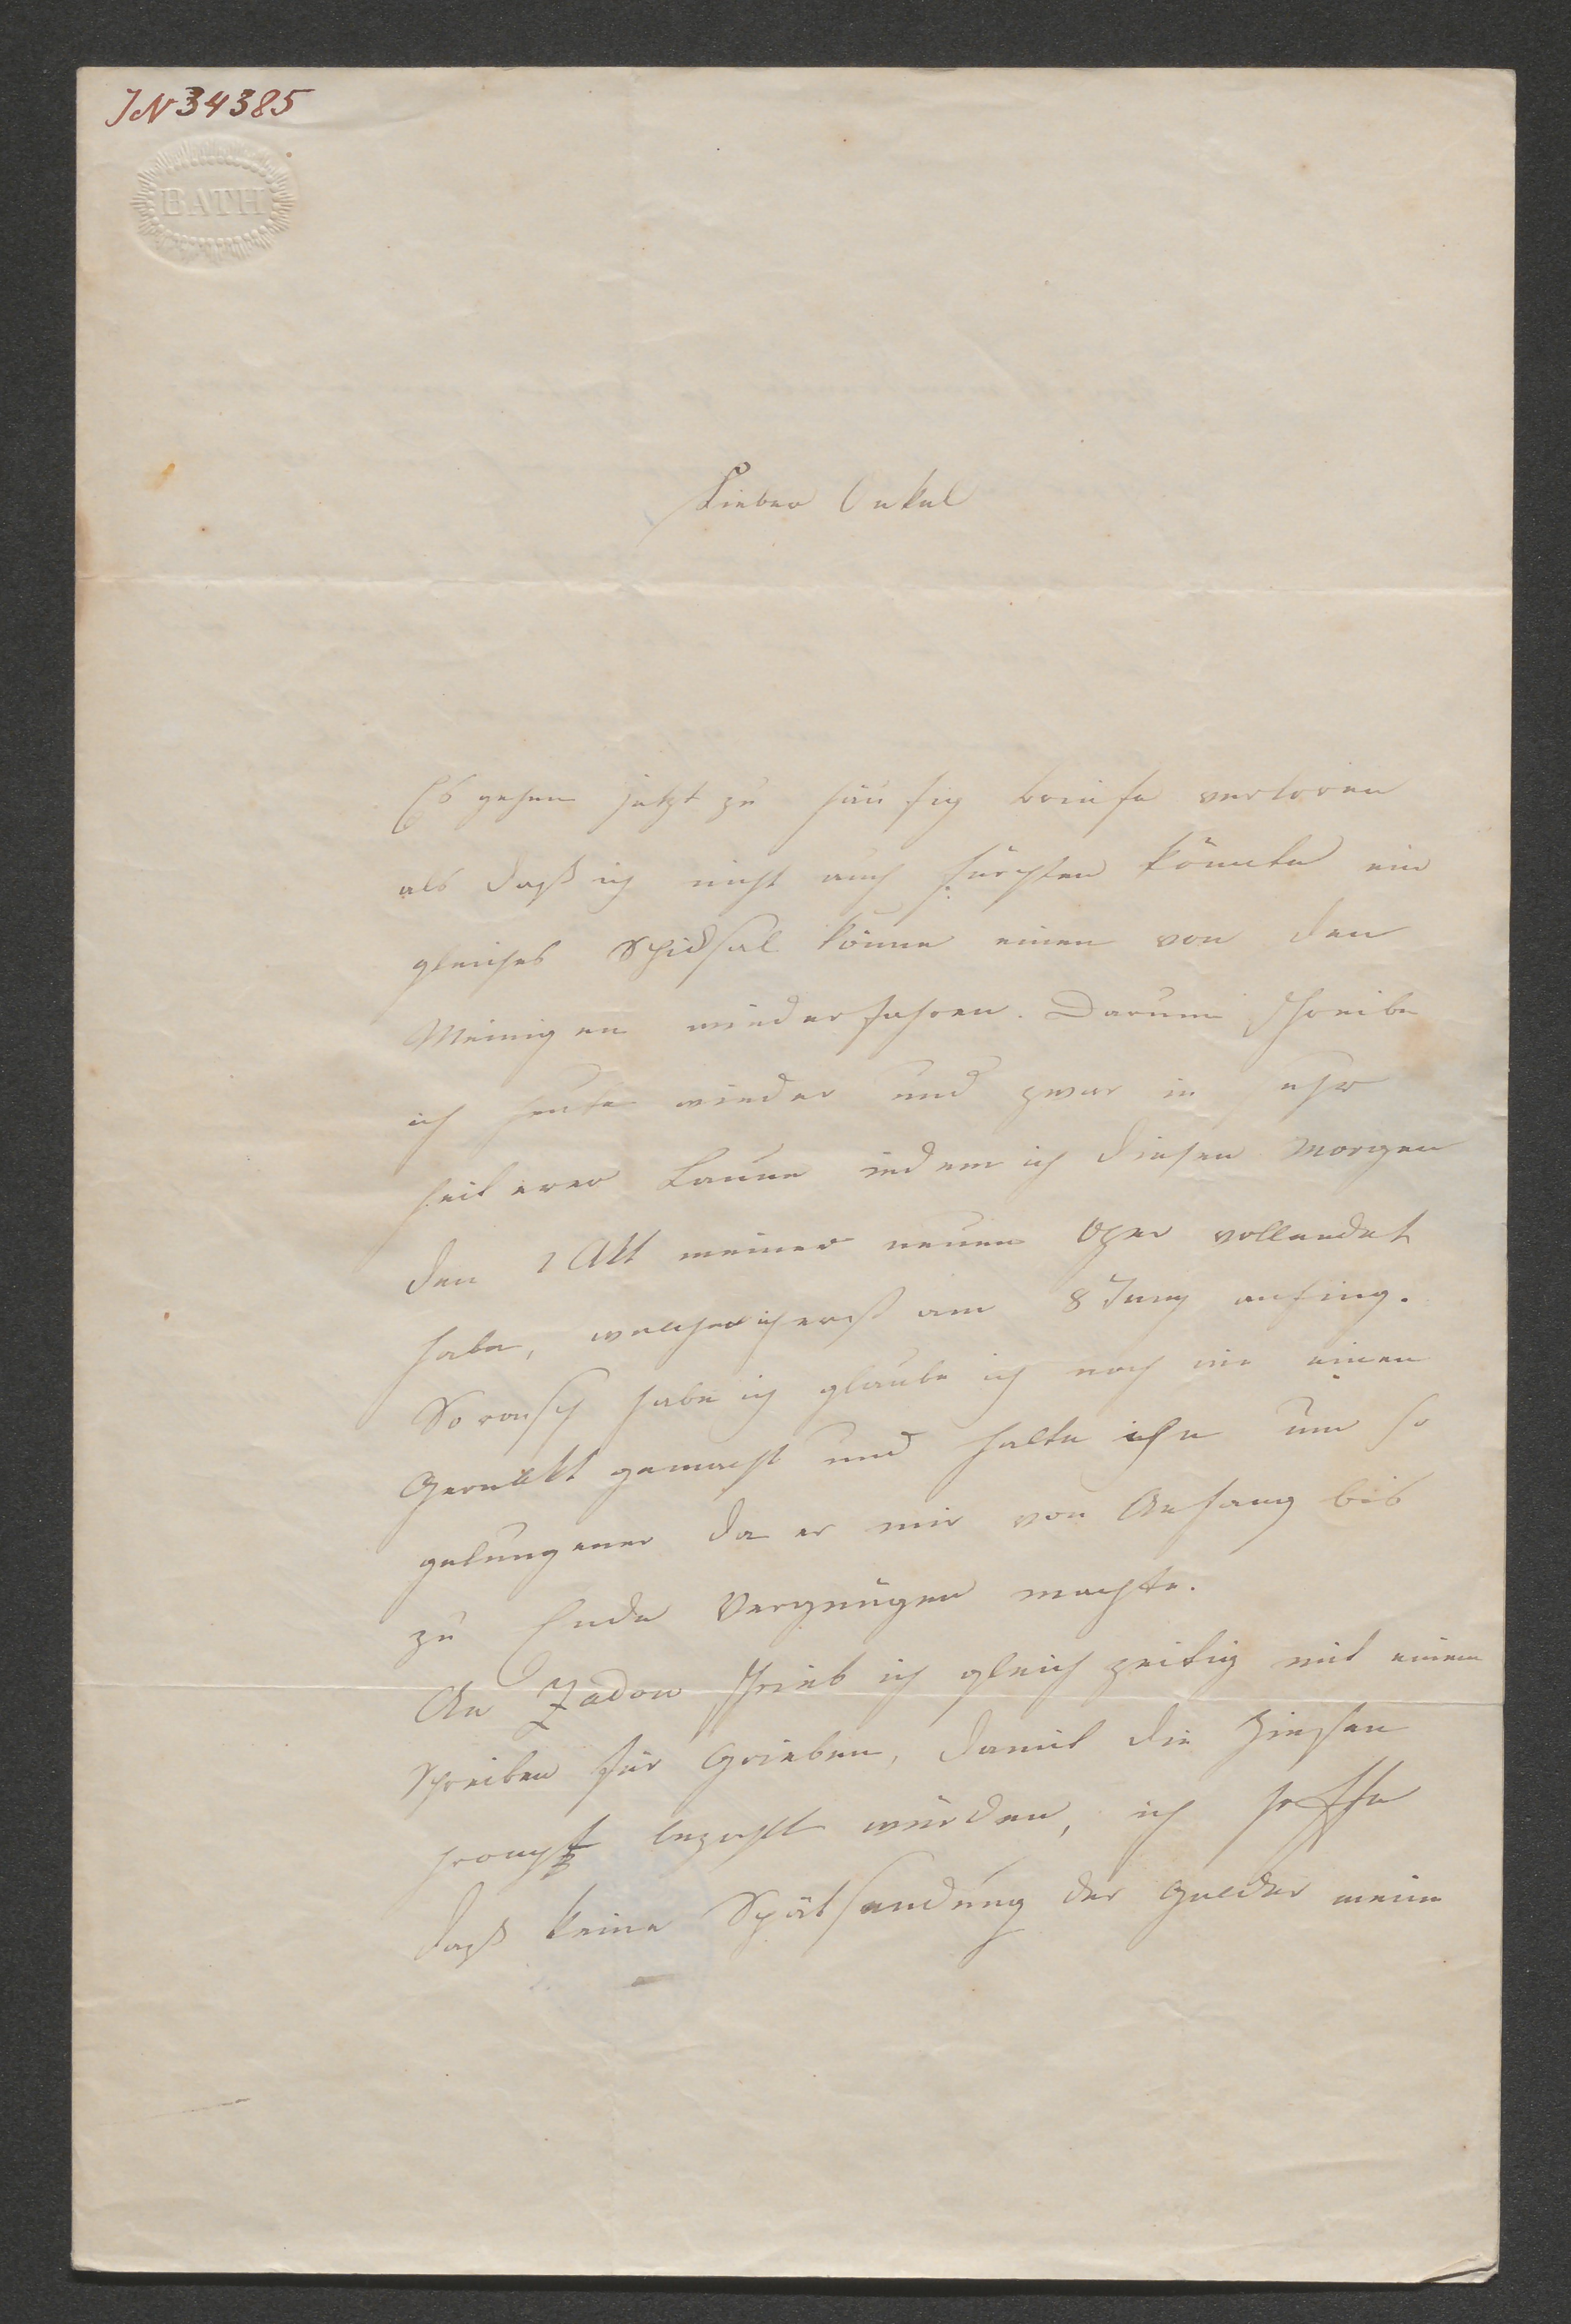 IN 34385
BATH
Lieber Onkel
Es gehen jetzt zu häufig briefe verloren
als daß ich nicht auch fürchten könnte ein
gleiches Schicksal könne einen von den
Meinigen wiederfahren. Darum schreibe
ich heute wieder und zwar in sehr
heiterer Laune indem ich diesen Morgen
den 1 Akt meiner neuen Oper vollendet
habe, welche ich erst am 8 Juny anfing.
So rasch habe ich glaube ich noch nie einen
gemacht und halte ihn um so
gelungener da er mir von Anfang bis
zu Ende Vergnügen machte.
An Zadow schrieb ich gleichzeitig mit einem
Schreiben für Grieben, damit die Zinsen
prompt bezahlt würden, ich hoffe
daß keine Spätsendung der Gelder meine